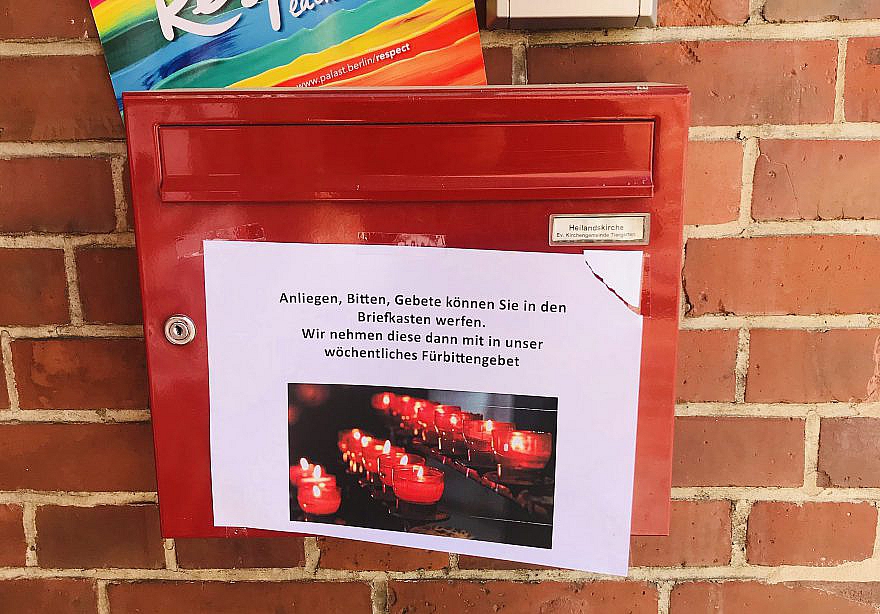 each
www.palast.berlin/respect
Heilandskirche
Ev. Kirchengemeinde Tiergarten
Anliegen, Bitten, Gebete können Sie in den
Briefkasten werfen.
Wir nehmen diese dann mit in unser
wöchentliches Fürbittengebet